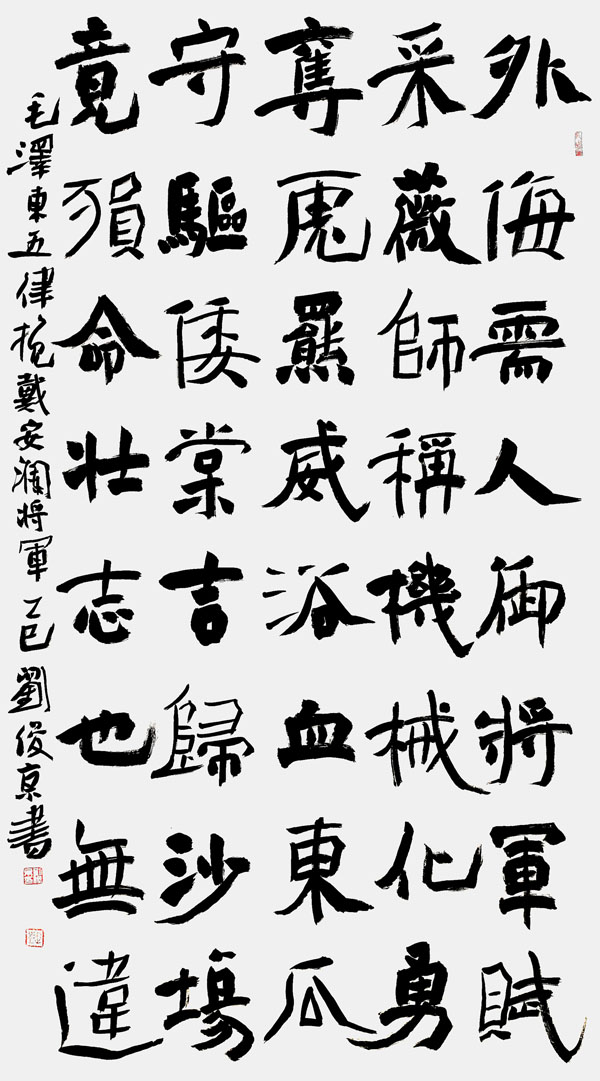 外侮需人御將軍賦
采薇師稱機械化勇
奪虎羆威浴血東瓜
守驅倭棠吉歸沙場
竟殞命壯志也無違
毛澤東五律挽戴安瀾将軍乙巳劉俊京書